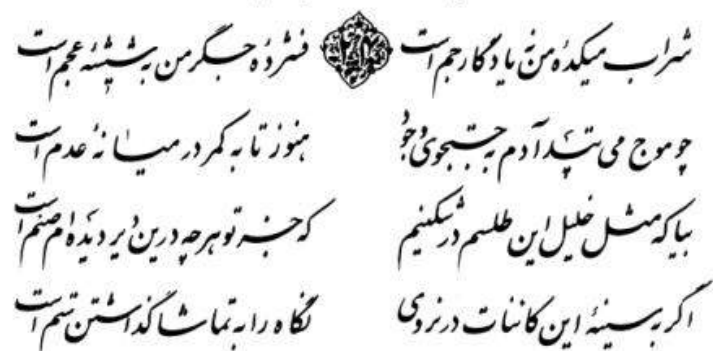 شراب میکدهٔ من نه یادگار جم است فشردهٔ جگر من به شیشهٔ عجم است
چو موج می تپد آدم به جستجوی وجود هنوز تا به کمر در میانهٔ عدم است
بیا که مثل خلیل این طلسم در شکنیم که جز تو هر چه درین دیر دیده‌ام صنم است
اگر به سینهٔ این کائنات در نروی نگاه را به تماشا گذاشتن ستم است